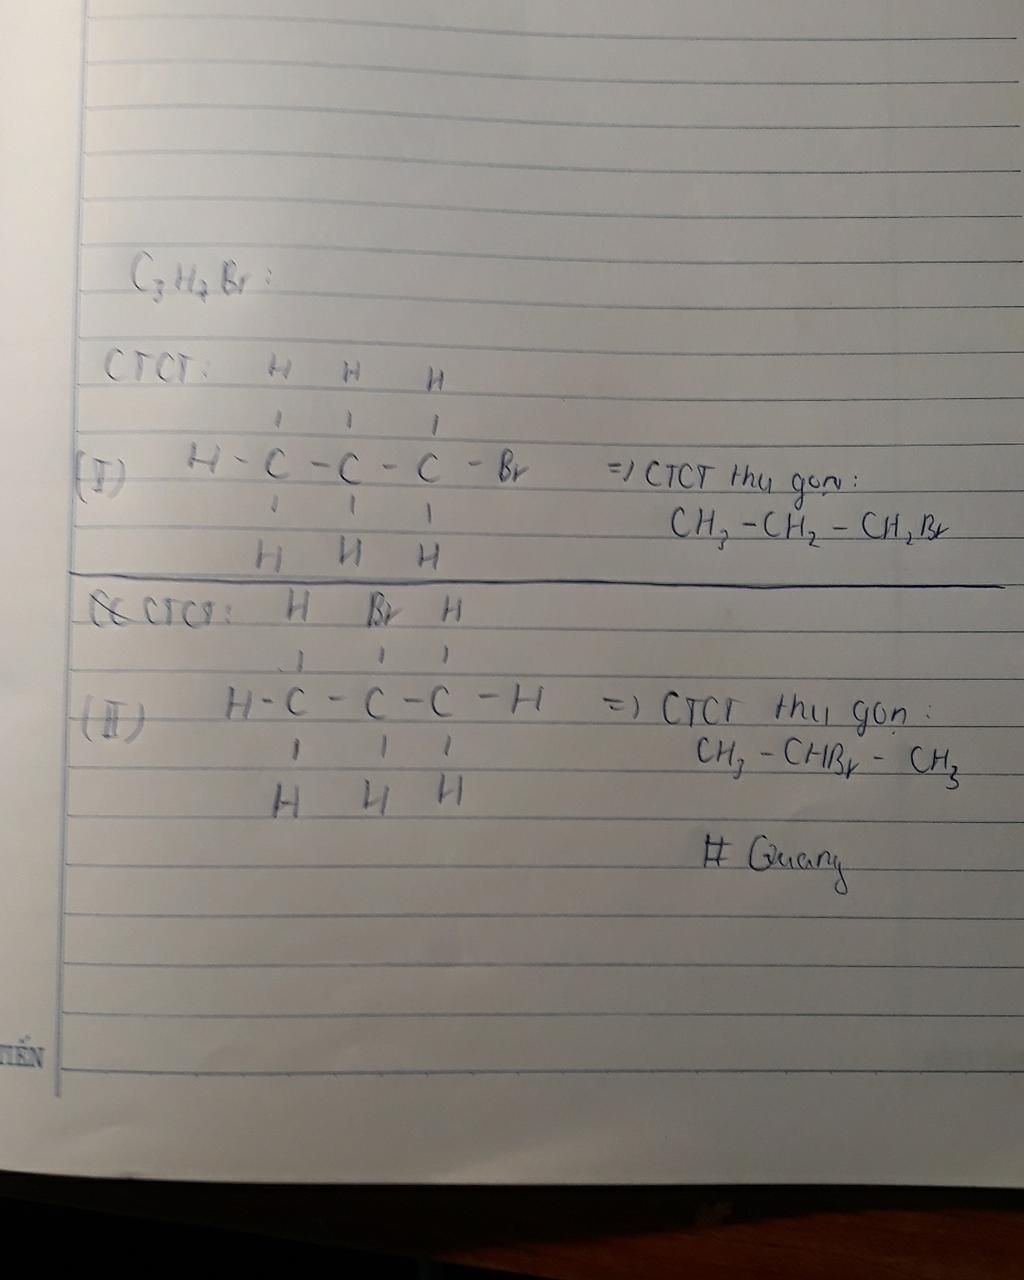 C₃H₇Br:
CTCT: H H H
(I) H - C - C - C - Br => CTCT thu gọn:
CH₃ - CH₂ - CH₂Br
H H H
CTCT: H Br H
(II) H - C - C - C - H => CTCT thu gọn:
CH₃ - CHBr - CH₃
H H H
# Quang
TIẾN